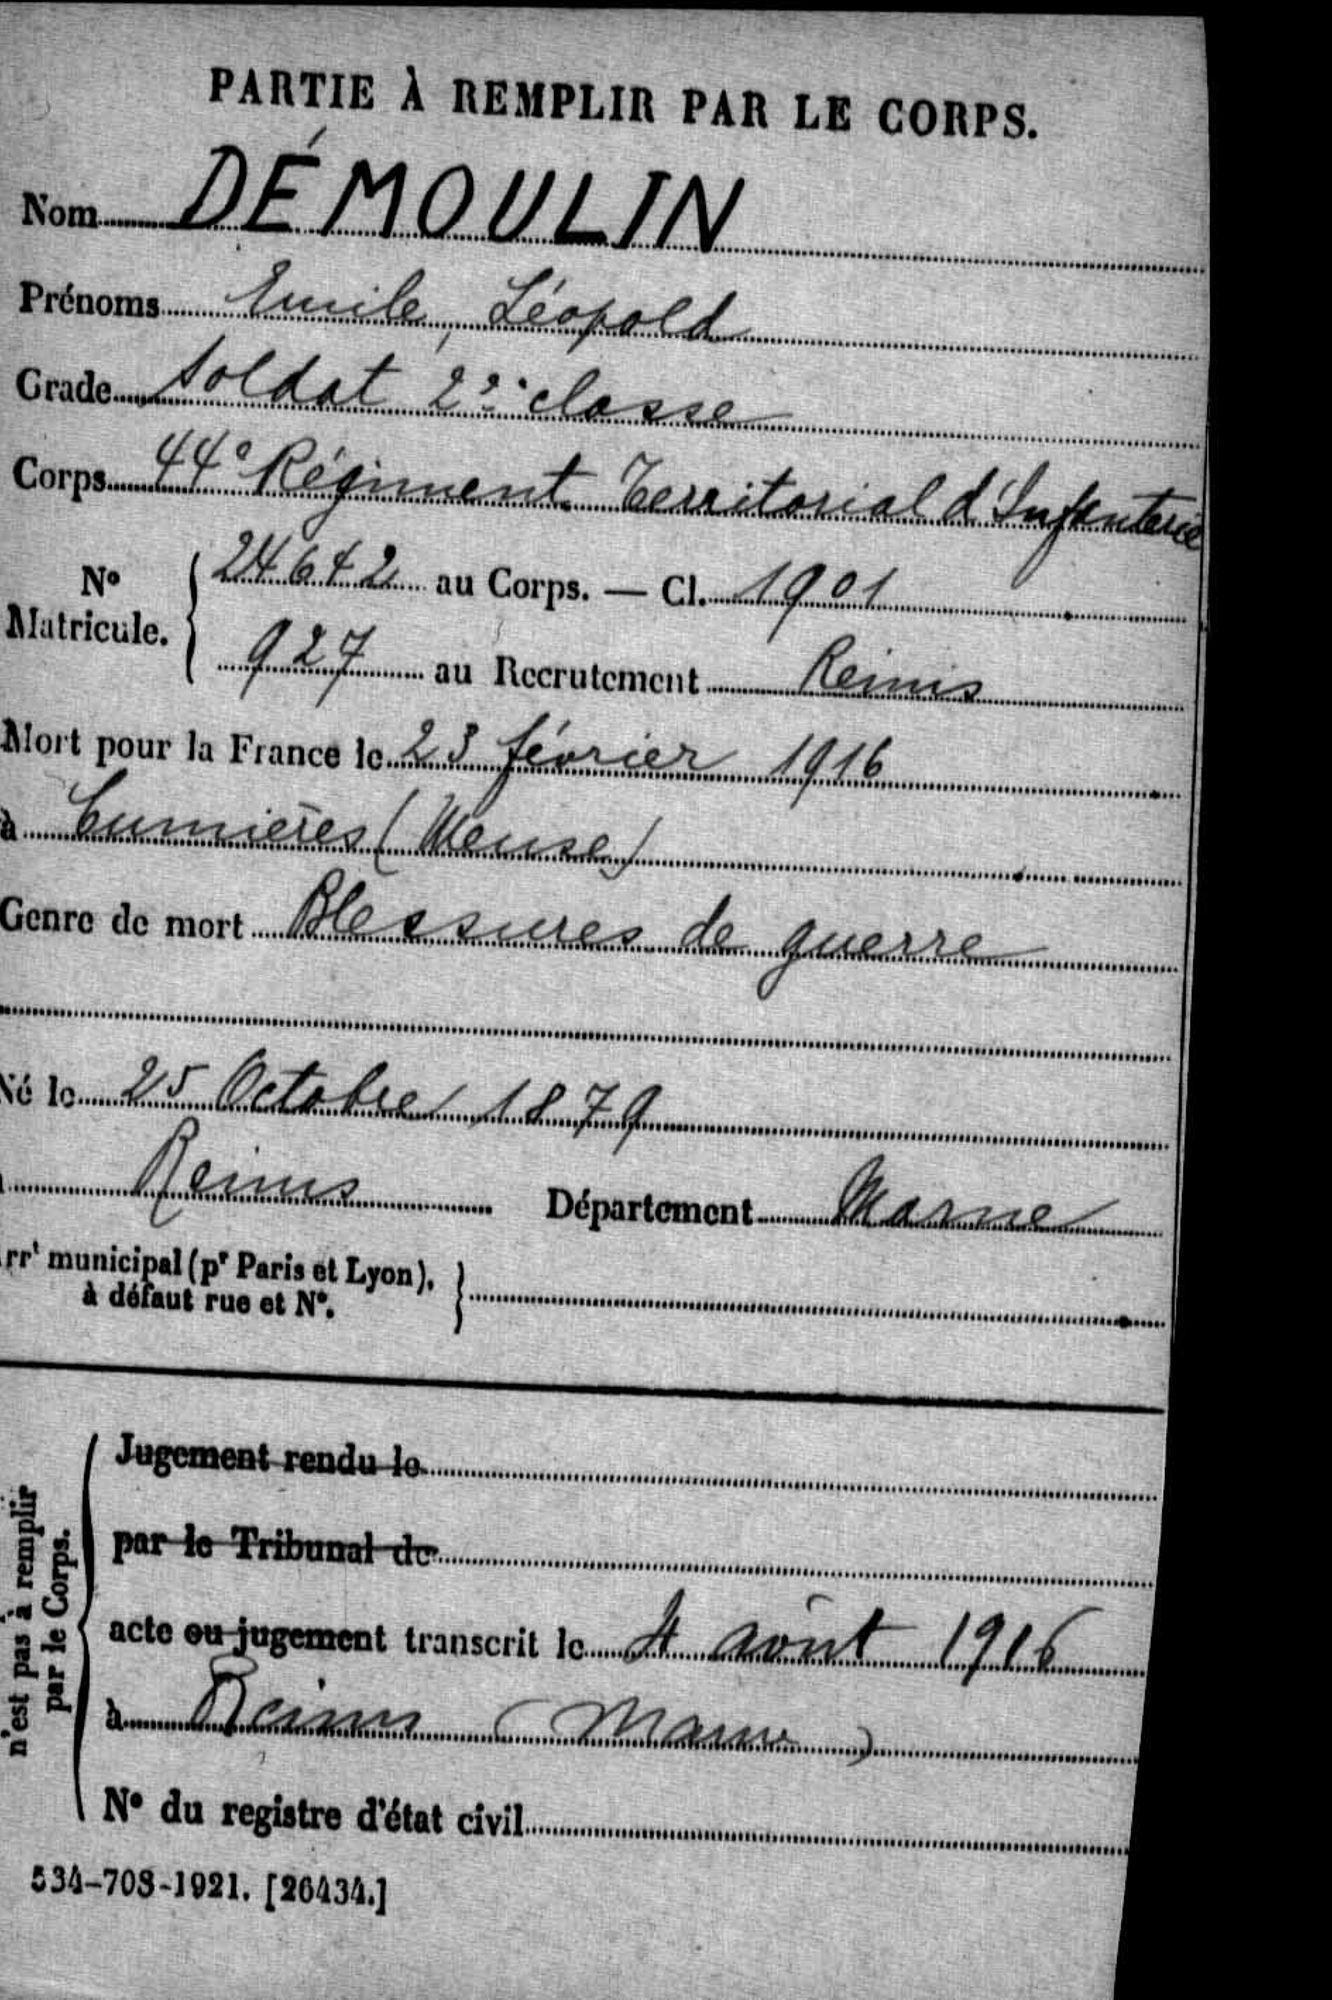 PARTIE À REMPLIR PAR LE CORPS.
Nom DÉMOULIN
Prénoms Emile, Léopold
Grade Soldat 2e classe
Corps 44e Régiment Territorial d'Infanterie
No Matricule. 24642 au Corps. — Cl. 1901
927 au Recrutement Reims
Mort pour la France le 23 février 1916
à Cumières (Meuse)
Genre de mort Blessures de guerre
Né le 25 Octobre 1879
Reims Département Marne
rrt municipal (pr Paris et Lyon),
à défaut rue et No.
n'est pas à remplir
par le Corps.
Jugement rendu le
par le Tribunal de
acte ou jugement transcrit le 4 août 1916
à Reims (Marne)
No du registre d'état civil
534-708-1921. [26434.]